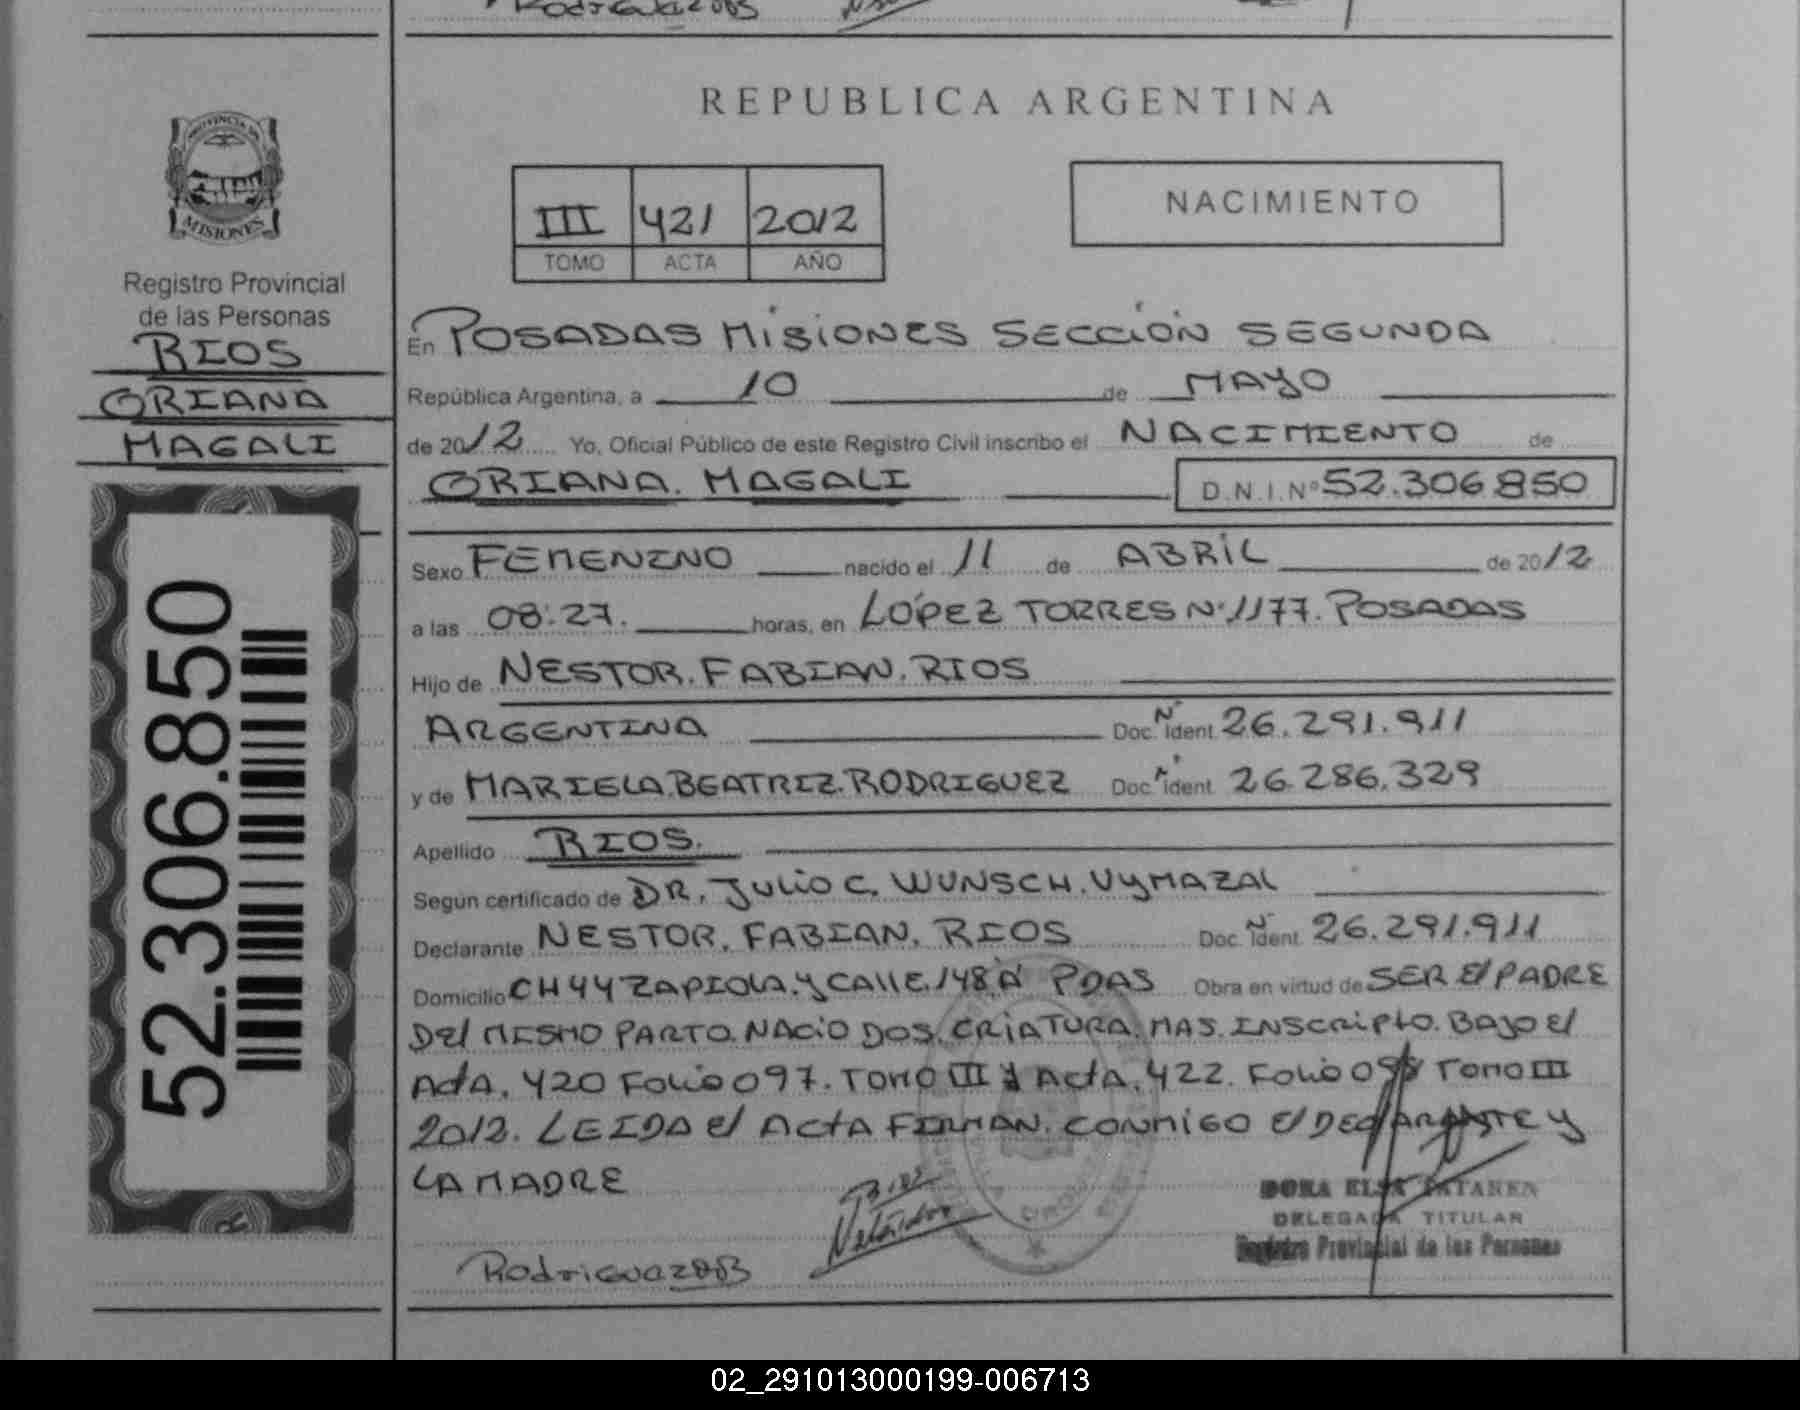 PROVINCIA DE
MISIONES
Registro Provincial
de las Personas
RIOS
ORIANA
MAGALI
52.306.850
REPUBLICA ARGENTINA
III 421 2012
TOMO ACTA AÑO
NACIMIENTO
En POSADAS MISIONES SECCION SEGUNDA
República Argentina, a 10 de MAYO
de 2012 Yo, Oficial Público de este Registro Civil inscribo el NACIMIENTO de
ORIANA. MAGALI D.N.I.Nº 52.306.850
Sexo FEMENINO nacido el 11 de ABRIL de 2012
a las 08:27. horas, en LOPEZ TORRES Nº 1177. POSADAS
Hijo de NESTOR. FABIAN. RIOS
ARGENTINA Doc. Nº Ident 26.291.911
y de MARIELA.BEATRIZ.RODRIGUEZ Doc. Nº ident 26.286.329
Apellido RIOS.
Según certificado de DR. JULIO C. WUNSCH. VYMAZAL
Declarante NESTOR. FABIAN. RIOS Doc. Nº Ident 26.291.911
Domicilio CH 44 ZAPIOLA. y CALLE 148 A PDAS Obra en virtud de SER El PADRE
Del MISMO PARTO. NACIO DOS. CRIATURA. MAS. INSCRIPto. BAJO El
ActA. 420 Folio 097. TOMO III y ActA. 422. Folio TOMO III
2012. LEIDA el ACtA FIRMAN. CONMIGO El DECLARANTE y
LA MADRE
Rios
Rodriguez
DORA ELSA
DELEGADA TITULAR
Registro Provincial de las Personas
02_291013000199-006713